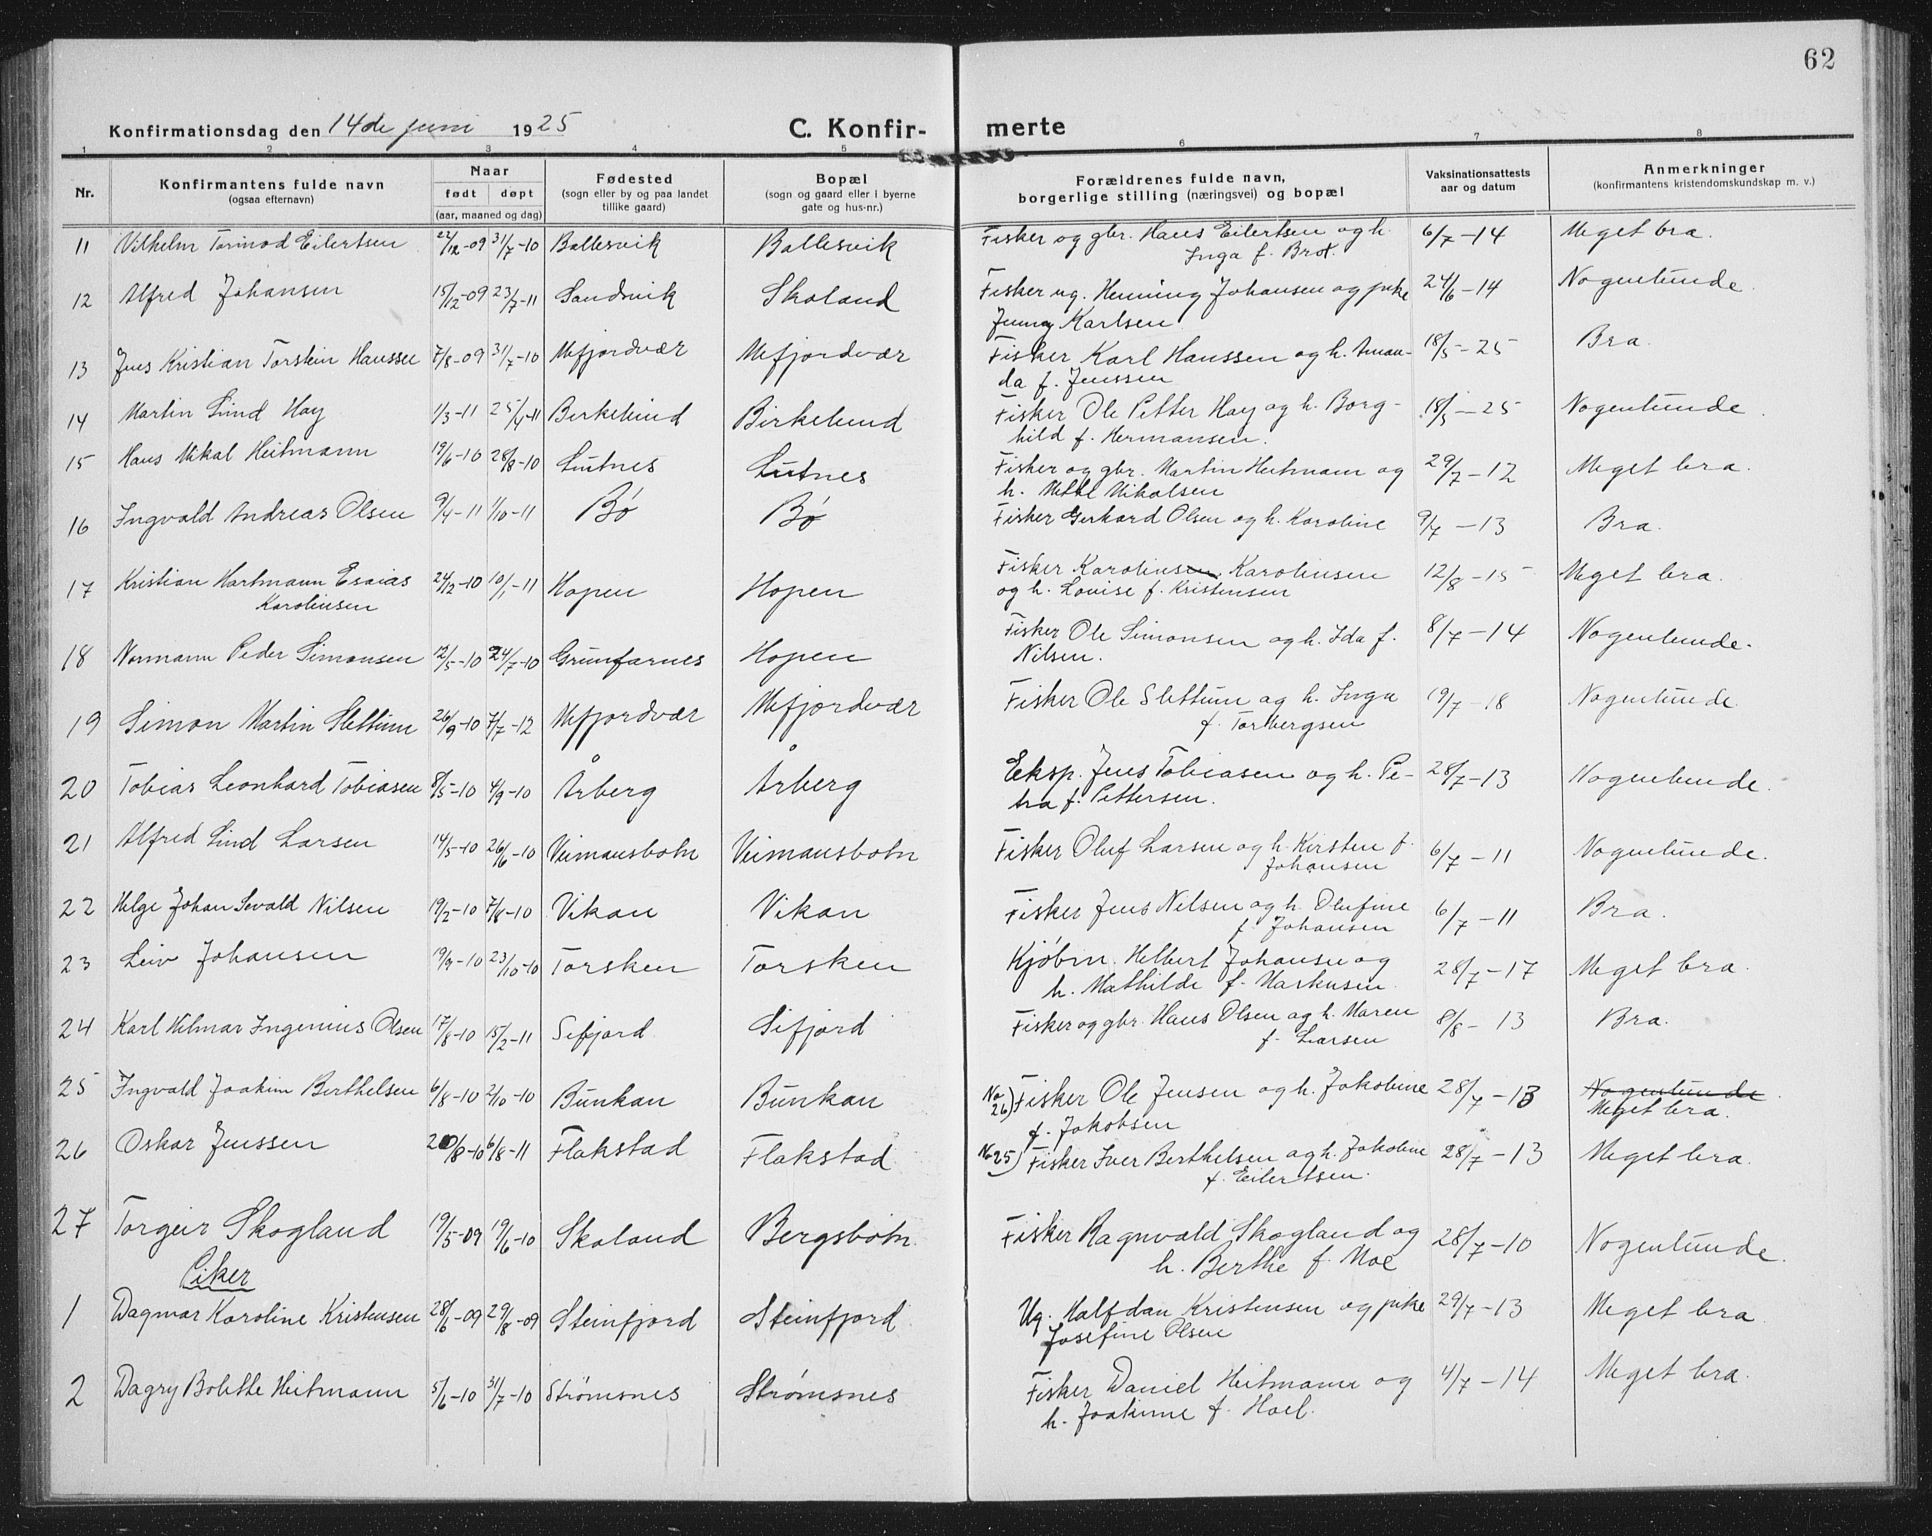 62
Konfirmationsdag den 14de juni 1925 C. Konfir- merte
1 2 3 4 5 6 7 8
Nr. Konfirmantens fulde navn (ogsaa efternavn) Naar født døpt (aar, maaned og dag) Fødested (sogn eller by og paa landet tillike gaard) Bopæl (sogn og gaard eller i byerne gate og hus-nr.) Forældrenes fulde navn, borgerlige stilling (næringsvei) og bopæl Vaksinationsattests aar og datum Anmerkninger (konfirmantens kristendomskundskap m. v.)
11 Vilhelm Tormod Eilertsen 22/12-09 31/7-10 Ballesvik Ballesvik Fisker og gbr. Hans Eilertsen og h. 6/7-14 Meget bra.
Inga f. Brox.
12 Alfred Johansen 15/12-09 23/7-11 Sandvik Skaland Fisker ug. Henning Johansen og pike 24/6-14 Nogenlunde
Jenny Karlsen
13 Jens Kristian Torstein Hanssen 7/8-09 31/7-10 Mefjordvær Mefjordvær Fisker Karl Hanssen og h. Aman- 18/5-25 Bra.
da f. Jenssen
14 Martin Lind Hay 1/3-11 25/4-11 Berkelund Birkelund Fisker Ole Petter Hay og h. Borg- 18/5-25 Nogenlunde.
hild f. Hermansen.
15 Hans Mikal Heitmann 19/6-10 28/8-10 Lutnes Lutnes Fisker og gbr. Martin Heitmann og 29/7-12 Meget bra.
h. Mette Mikalsen
16 Ingvald Andreas Olsen 9/4-11 1/10-11 Bø Bø Fisker Gerhard Olsen og h. Karoline 9/7-13 Bra.
17 Kristian Hartmann Esaias 24/12-10 10/1-11 Hopen Hopen Fisker Karolinsen Karolinsen 12/8-15 Meget bra.
Karolinsen og h. Lovise f. Kristensen
18 Normann Peder Simonsen 12/5-10 24/7-10 Grunfarnes Hopen Fisker Ole Simonsen og h. Ida f. 8/7-14 Nogenlunde.
Nilsen.
19 Simon Martin Slettum 26/9-10 7/7-12 Mefjordvær Mefjordvær Fisker Ole Slettum og h. Inga 19/7-18 Nogenlunde.
f. Torbergsen
20 Tobias Leonhard Tobiasen 8/5-10 4/9-10 Årberg Årberg Eksp. Jens Tobiasen og h. Pe- 28/7-13 Nogenlunde.
tra f. Pettersen.
21 Alfred Lind Larsen 14/5-10 26/6-10 Veimansbotn Veimansbotn Fisker Oluf Larsen og h. Kirsten f. 6/7-11 Nogenlunde.
Johansen
22 Helge Johan Sevald Nilsen 19/2-10 7/8-10 Vikan Vikan Fisker Jens Nilsen og h. Olufine 6/7-11 Bra.
f. Johansen
23 Leiv Johansen 19/9-10 23/10-10 Torsken Torsken Kjøbm. Helbert Johansen og 28/7-17 Meget bra.
h. Mathilde f. Markusen.
24 Karl Hilmar Ingenius Olsen 17/8-10 15/2-11 Sifjord Sifjord Fisker og gbr. Hans Olsen og h. Maren 8/8-13 Bra.
f. Larsen
25 Ingvald Joakim Berthelsen 6/8-10 2/10-10 Bunkan Bunkan No 26) Fisker Ole Jensen og h. Jakobine 28/7-13 Nogenlunde.
f. Jakobsen Meget bra.
26 Oskar Jenssen 20/8-10 6/8-11 Flakstad Flakstad No 25) Fisker Iver Berthelsen og h. Jakobine 28/7-13 Meget bra.
f. Eilertsen.
27 Torgeir Skogland 19/5-09 19/6-10 Skaland Bergsbotn. Fisker Ragnvald Skogland og 28/7-10 Nogenlunde.
h. Berthe f. Moe
Piker
1 Dagmar Karoline Kristensen 28/6-09 29/8-09 Steinfjord Steinfjord Ug. Halfdan Kristensen og pike 29/7-13 Meget bra.
Josefine Olsen
2 Dagny Bolette Heitmann 5/6-10 31/7-10 Strømsnes Strømsnes Fisker Daniel Heitmann og 4/7-14 Meget bra.
h. Joakime f. Hoel.